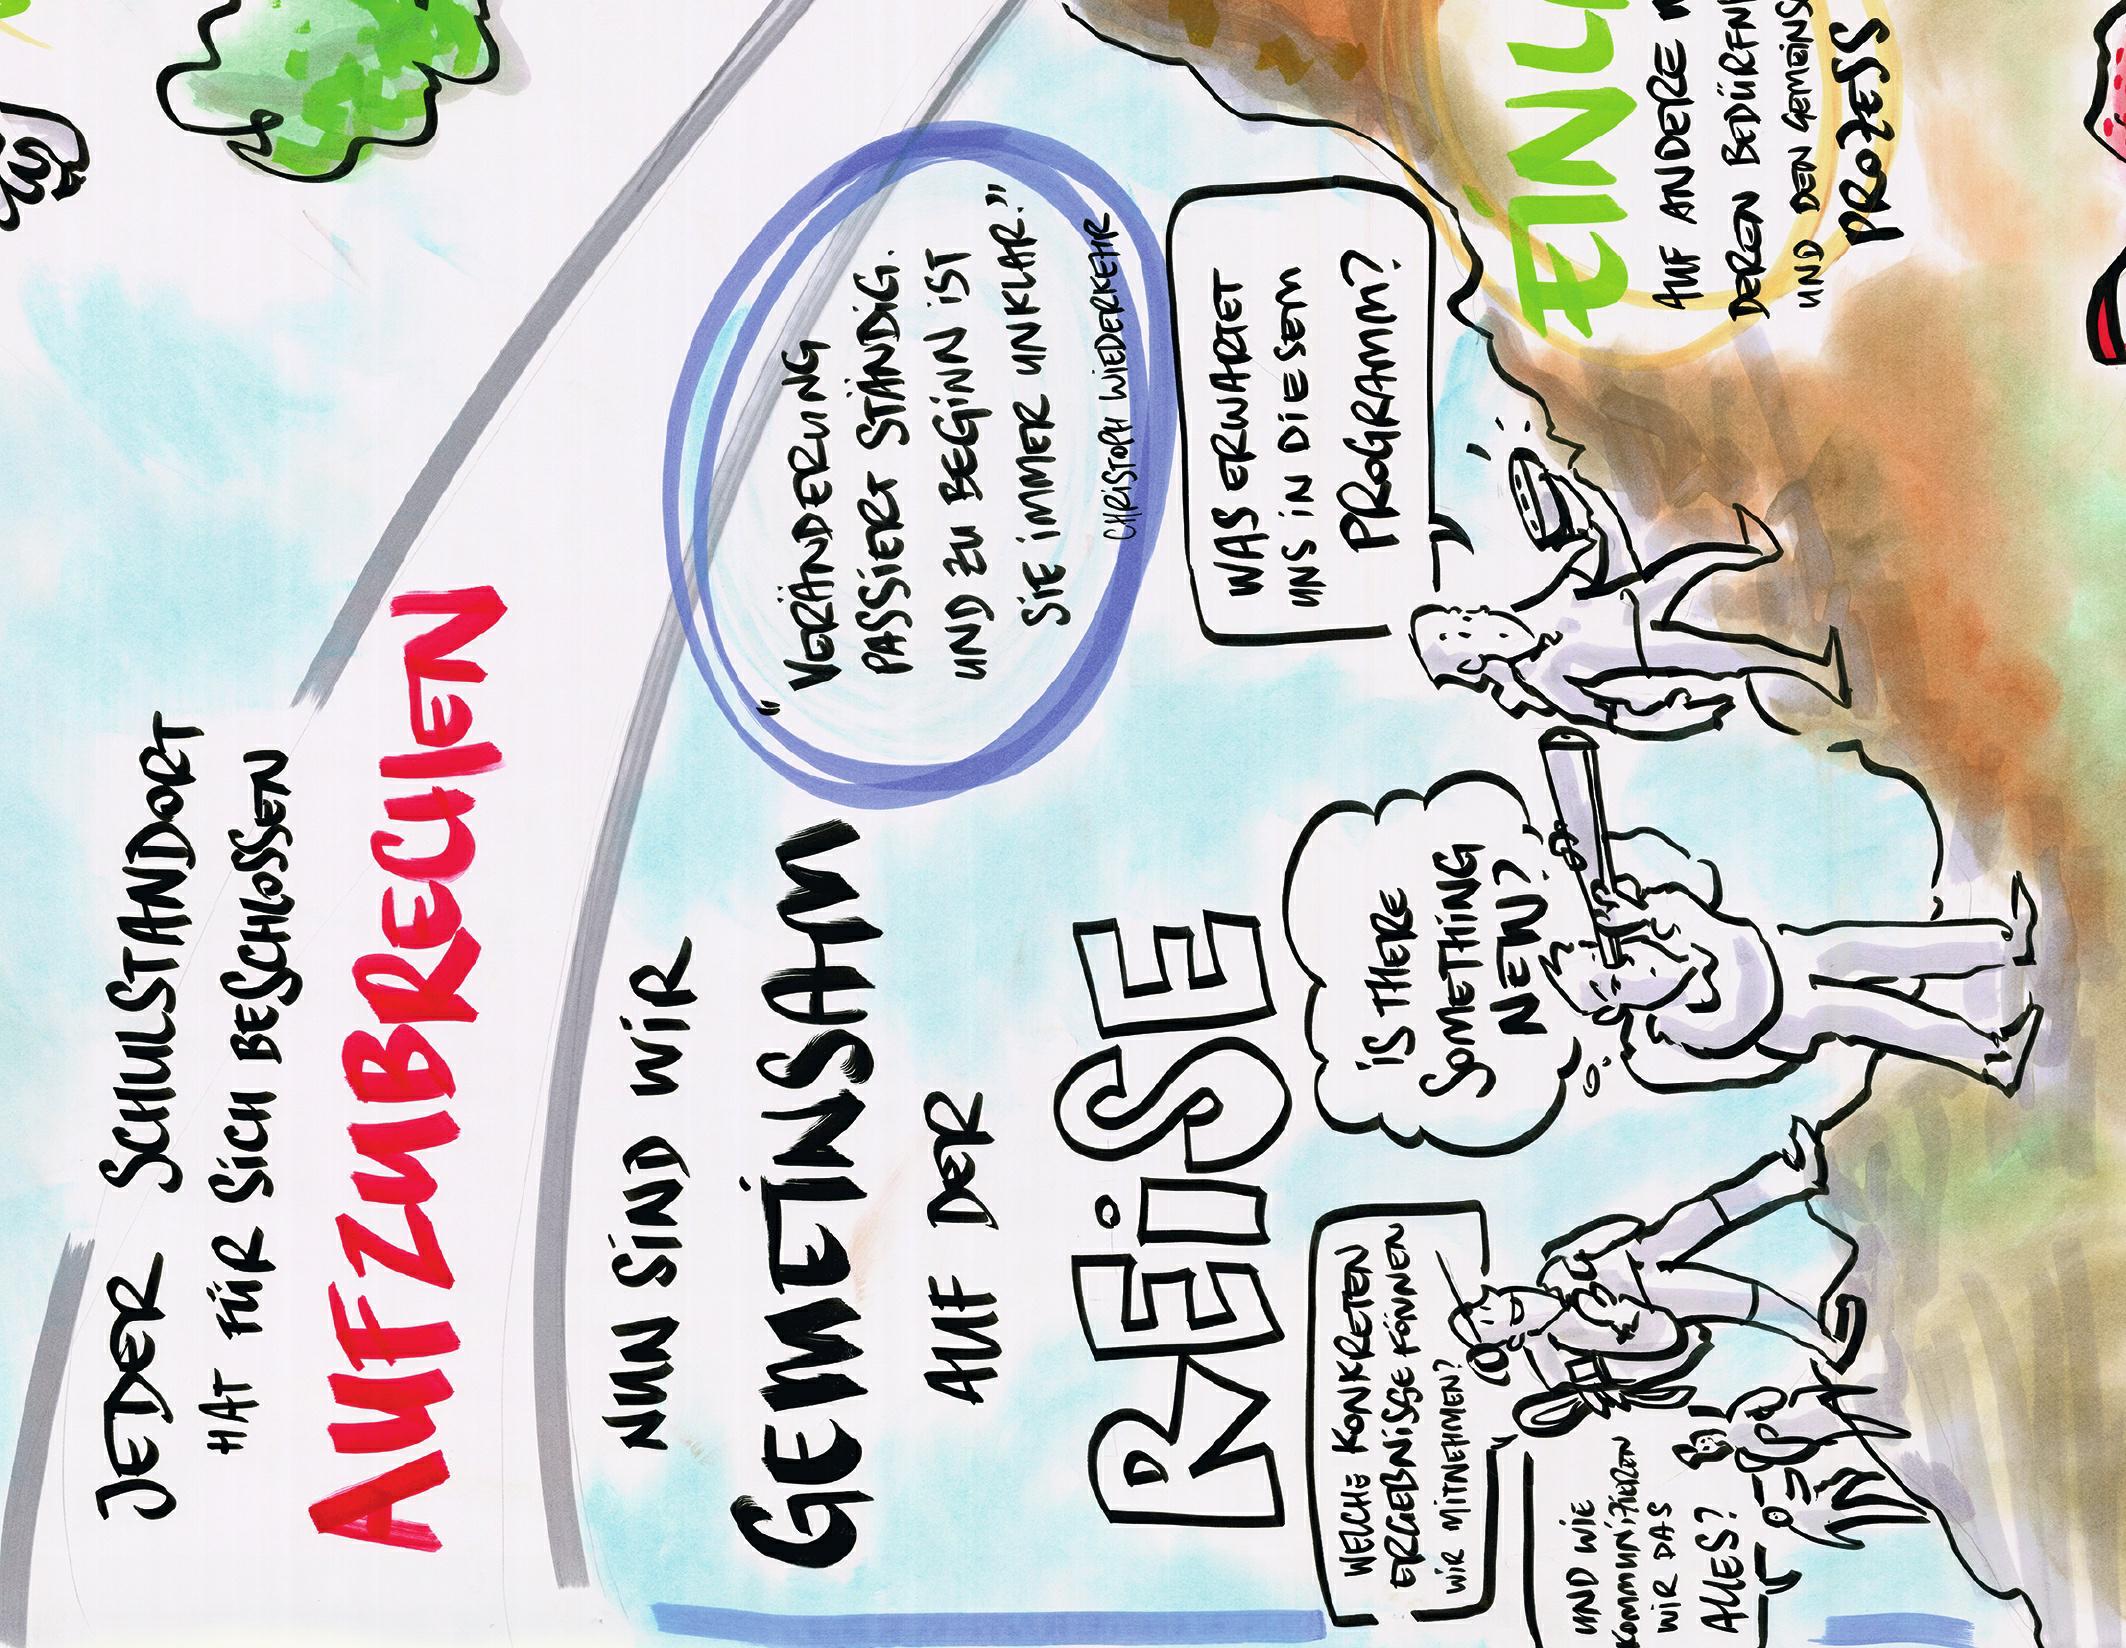 JEDER SCHULSTANDORT
HAT FÜR SICH BESCHLOSSEN
AUFZUBRECHEN
NUN SIND WIR
GEMEINSAM
AUF DER
REiSE
"VERÄNDERUNG
PASSIERT STÄNDIG.
UND ZU BEGINN IST
SIE IMMER UNKLAR."
CHRISTOPH WIEDERKEHR
WELCHE KONKRETEN
ERGEBNISSE KÖNNEN
WIR MITNEHMEN?
UND WIE
KOMMUNIZIEREN
WIR DAS
ALLES?
IS THERE
SOMETHING
NEW?
WAS ERWARTET
UNS IN DIESEM
PROGRAMM?
AUF ANDERE
DEREN
UND DEN
PROZESS